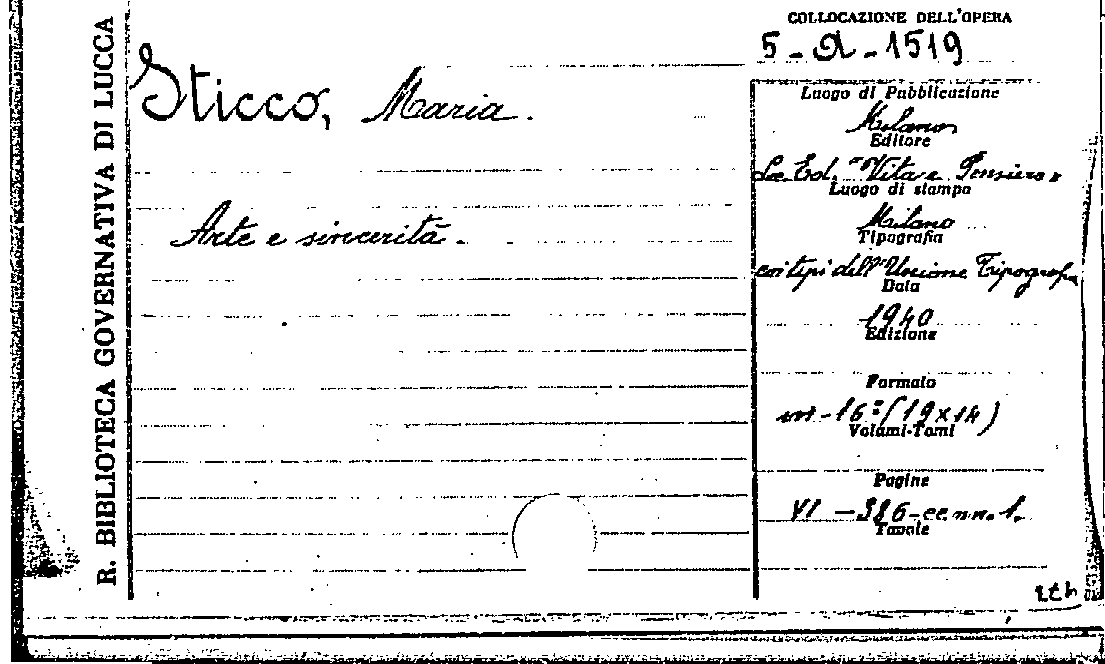 R. BIBLIOTECA GOVERNATIVA DI LUCCA
COLLOCAZIONE DELL'OPERA
5-A-1519
Sticco, Maria.
Arte e sincerità.
Luogo di Pubblicazione
Milano
Editore
Soc. Ed. "Vita e Pensiero"
Luogo di stampa
Milano
Tipografia
coi tipi dell'Unione Tipografica
Data
1940
Edizione
Formato
in-16º (19x14)
Volumi-Tomi
Pagine
VI - 386 - cc. nn. 1.
Tavole